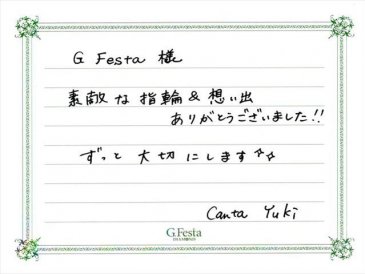 G Festa 様
素敵な指輪&想い出
ありがとうございました!!
ずっと大切にします☆☆
Canta Yuki
G.Festa
DIAMOND